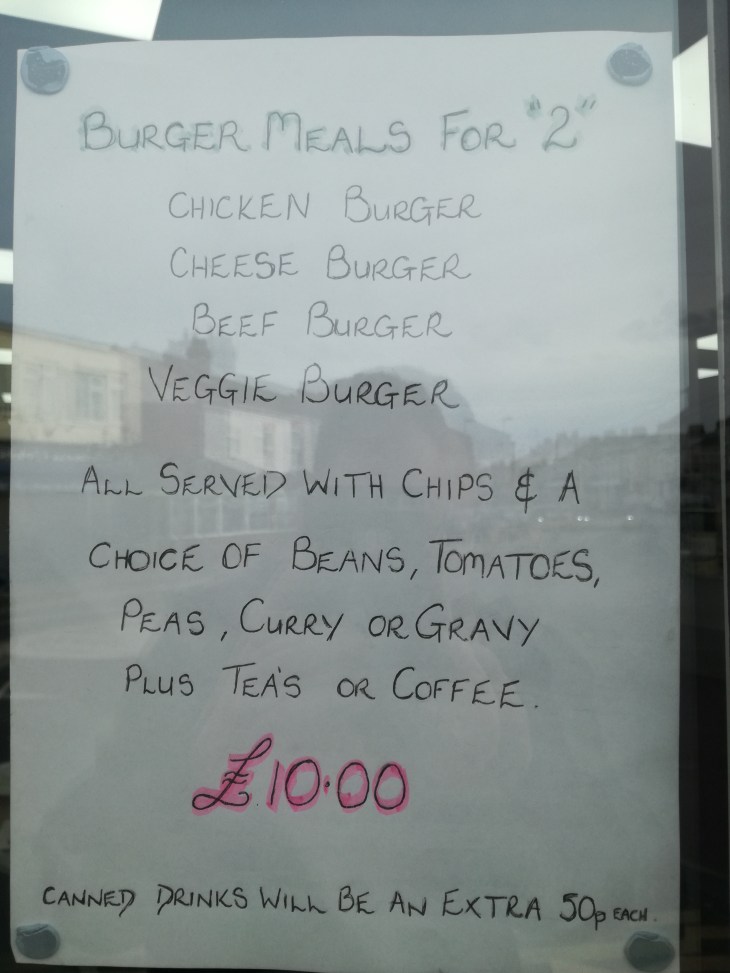 BURGER MEALS FOR "2"
CHICKEN BURGER
CHEESE BURGER
BEEF BURGER
VEGGIE BURGER
ALL SERVED WITH CHIPS & A
CHOICE OF BEANS, TOMATOES,
PEAS, CURRY OR GRAVY
PLUS TEA'S OR COFFEE.
£10.00
CANNED DRINKS WILL BE AN EXTRA 50p EACH.